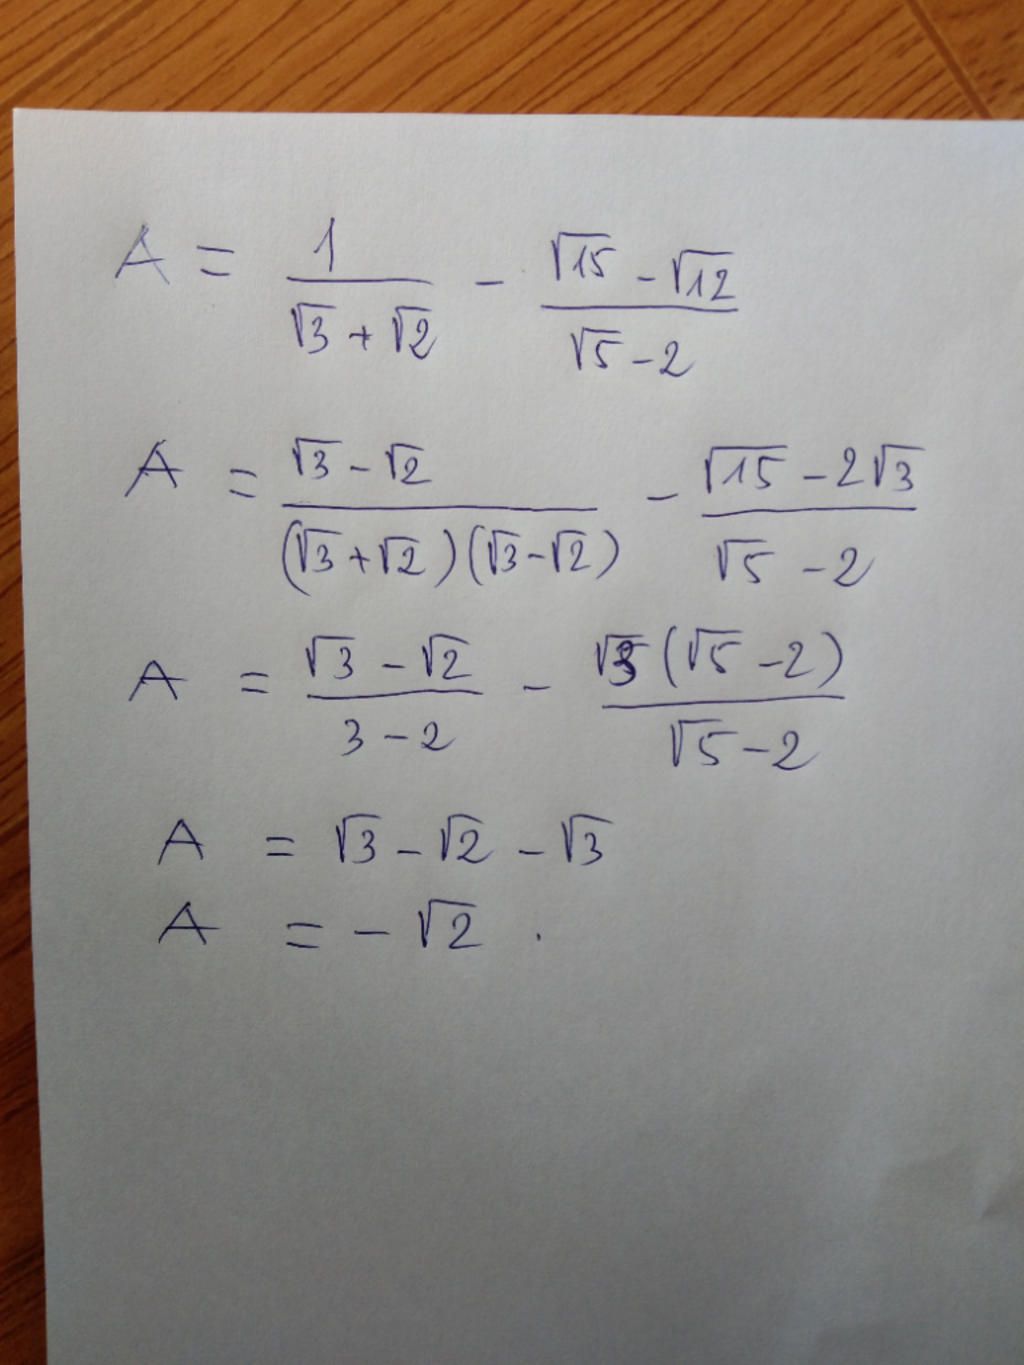 A = 1/(√3 + √2) - (√15 - √12)/(√5 - 2)
A = (√3 - √2)/((√3 + √2)(√3 - √2)) - (√15 - 2√3)/(√5 - 2)
A = (√3 - √2)/(3 - 2) - √3(√5 - 2)/(√5 - 2)
A = √3 - √2 - √3
A = - √2 .